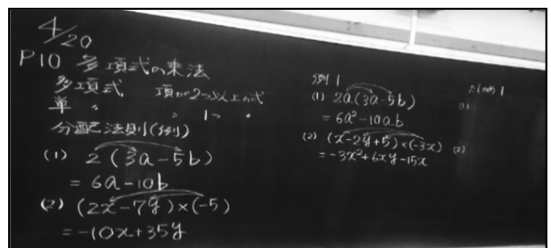 4/20
P10 多項式の乗法
多項式 項が2つ以上の式
単 〃 〃 1つ 〃
分配法則(例)
(1) 2(3a-5b)
=6a-10b
(2) (2x-7y)×(-5)
=-10x+35y
例1
(1) 2a(3a-5b)
=6a²-10ab
(2) (x-2y+5)×(-3x)
=-3x²+6xy-15x
(1)
(2)